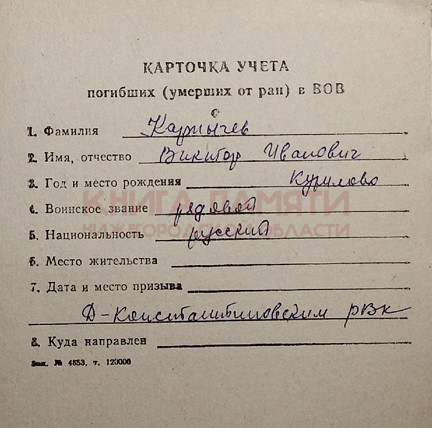 КАРТОЧКА УЧЕТА
погибших (умерших от ран) в ВОВ
1. Фамилия Карпычев
2. Имя, отчество Виктор Иванович
3. Год и место рождения Курилово
КНИГА ПАМЯТИ
4. Воинское звание рядовой
НИЖЕГОРОДСКОЙ ОБЛАСТИ
5. Национальность русский
6. Место жительства
7. Дата и место призыва
Д-Константиновским РВК
8. Куда направлен
Зак. № 4853, т. 120000